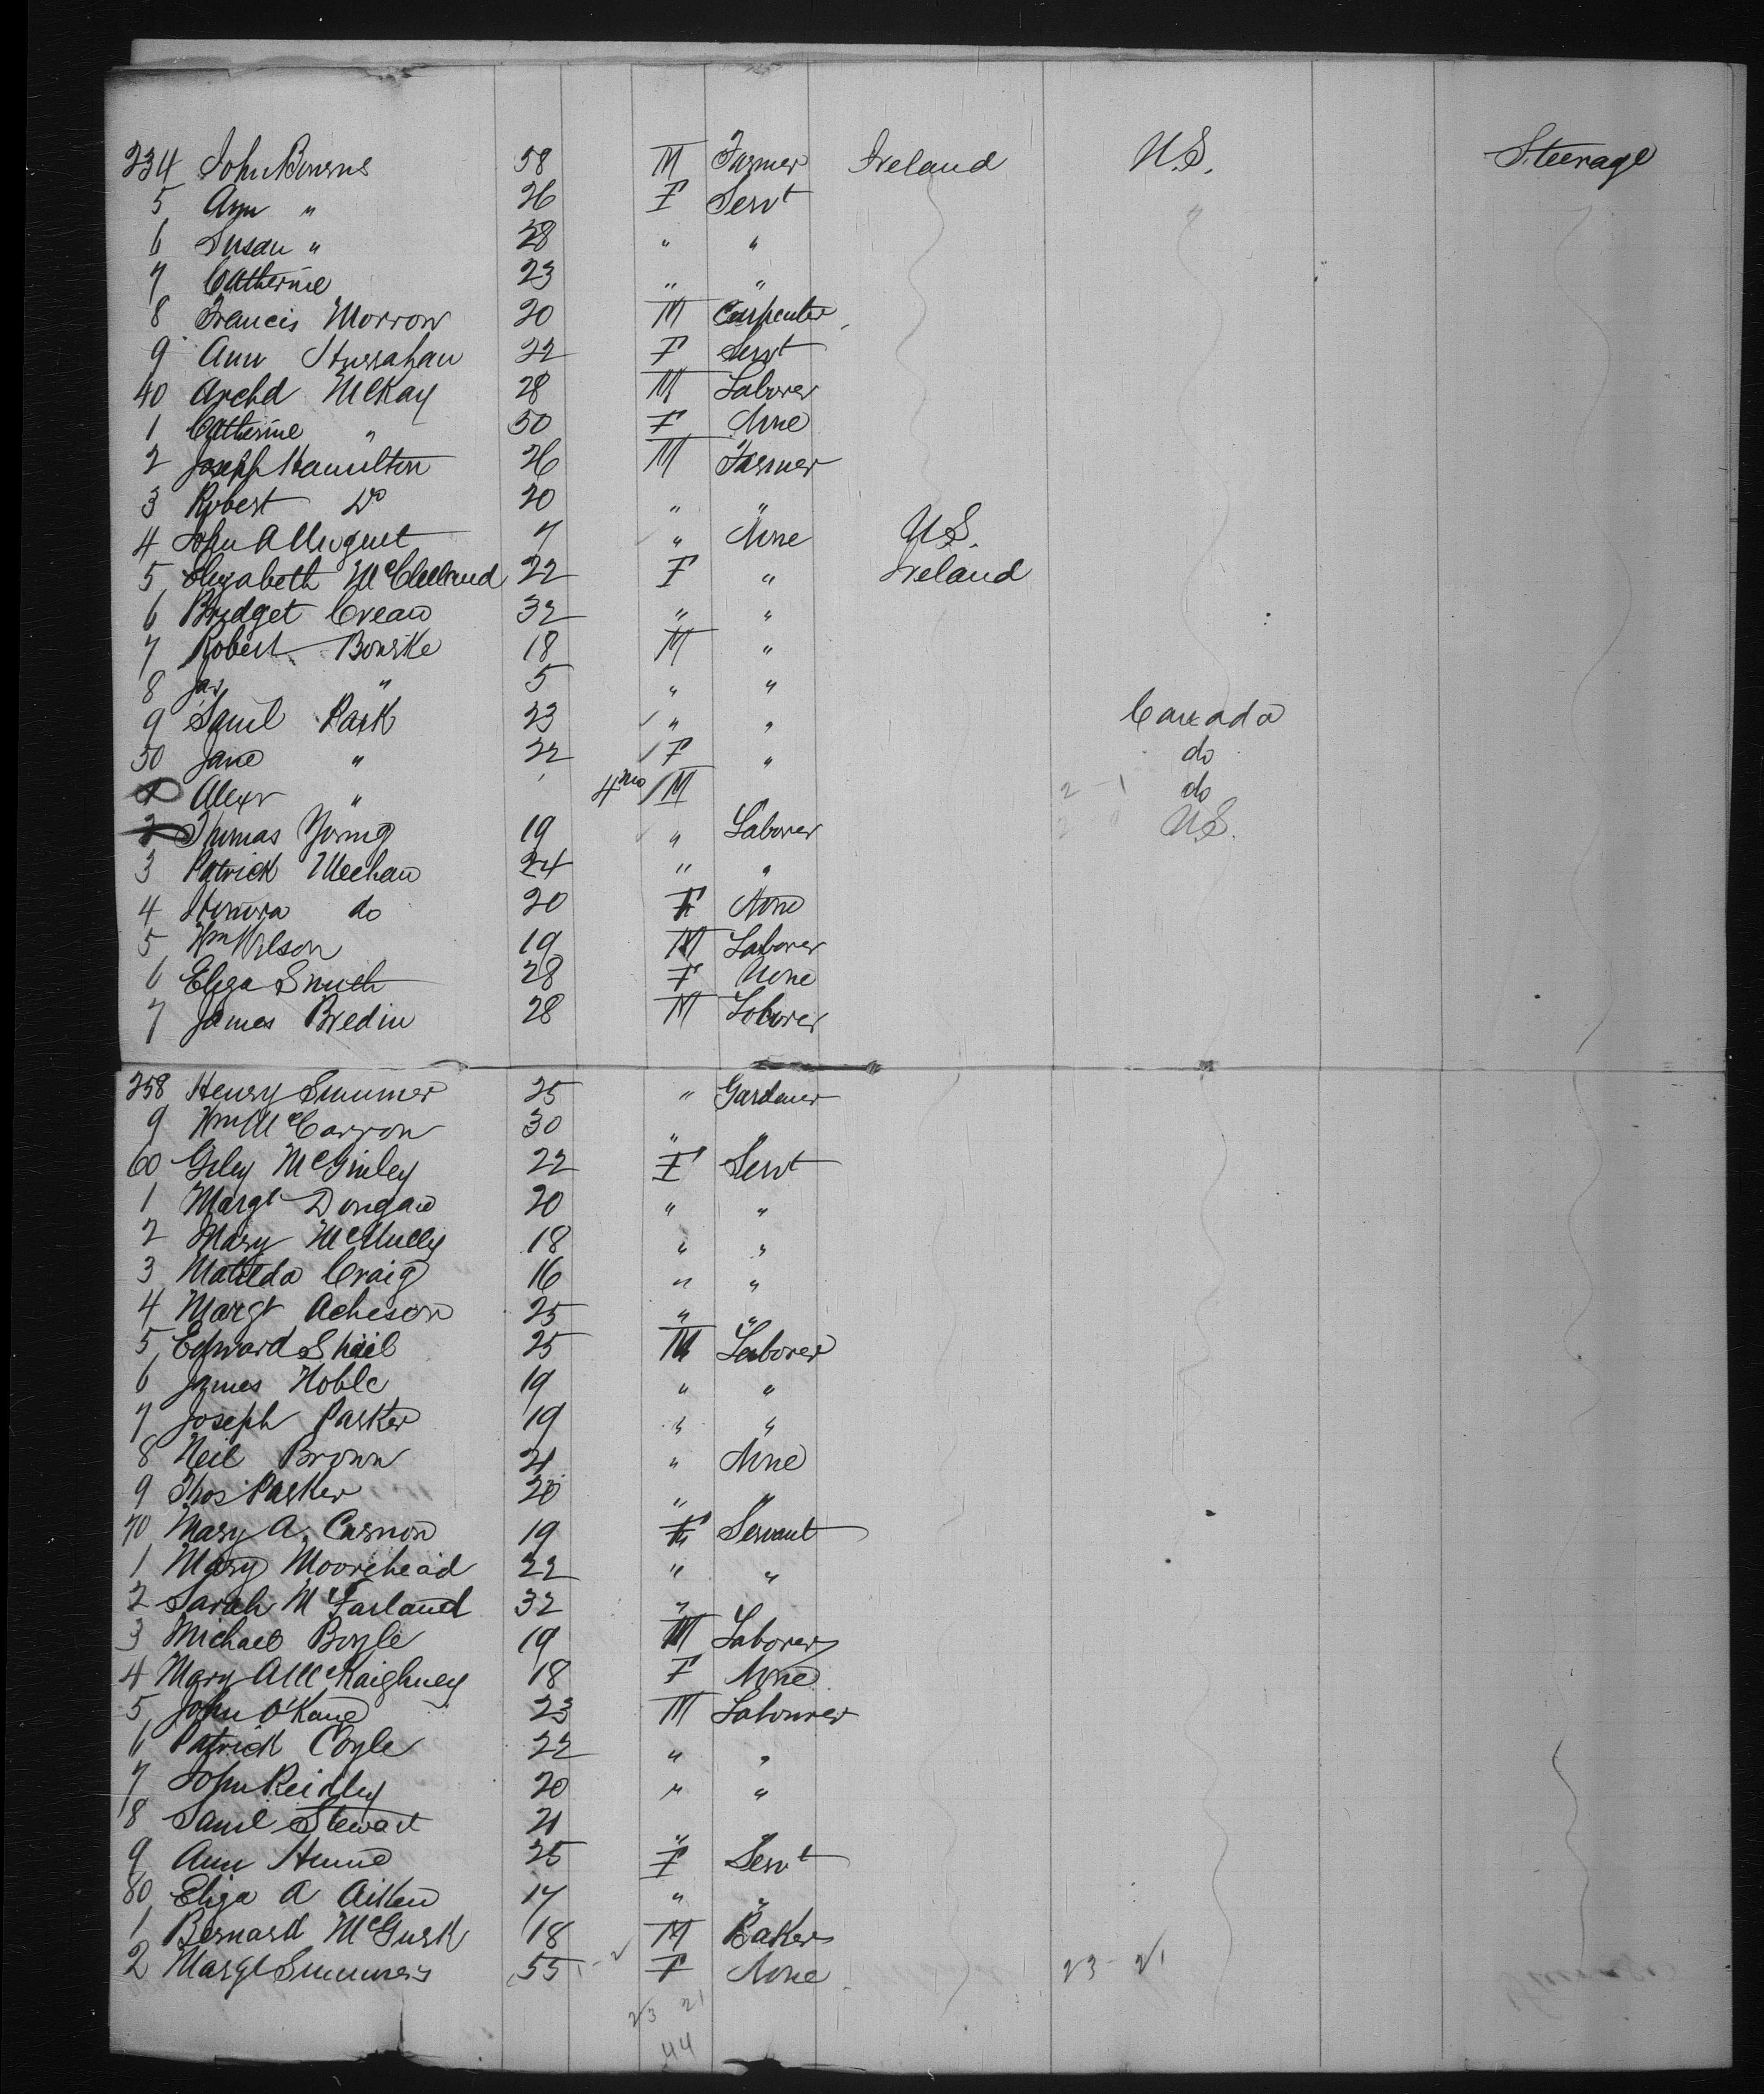 234 John Bourns 58 M Farmer Ireland U.S. Steerage
5 Ann " 26 F Servt "
6 Susan " 28 " "
7 Catherine 23 " "
8 Francis Morrow 20 M Carpenter
9 Ann Hurrahan 22 F Servt
40 Archd McKay 28 M Laborer
1 Catherine " 50 F None
2 Joseph Hamilton 26 M Farmer
3 Robert Do 20 " "
4 John A 7 " None U.S.
5 Elizabeth McClelland 22 F " Ireland
6 Bridget Crean 32 " "
7 Robert Bourke 18 M "
8 Jas " 5 " "
9 Saml Park 23 " " Canada
50 Jane " 22 F " do
1 Alexr " 4 mo M 2 - 1 do
2 Thomas Young 19 " Laborer U.S.
3 Patrick Meehan 24 " "
4 Honora do 20 F None
5 Wm Wilson 19 M Laborer
6 Eliza Smith 28 F None
7 James Bredin 28 M Laborer
258 Henry Summer 25 " Gardener
9 Wm McCarron 30 " "
60 Giley McGinley 22 F Servt
1 Margt Dongan 20 " "
2 Mary McNully 18 " "
3 Matilda Craig 16 " "
4 Margt Acheson 25 " "
5 Edward Shiel 25 M Laborer
6 James Noble 19 " "
7 Joseph Parker 19 " "
8 Neil Brown 21 " None
9 Thos Parker 20 " "
70 Mary A. Carnon 19 F Servant
1 Mary Moorehead 22 " "
2 Sarah McFarland 32 "
3 Michael Boyle 19 M Laborer
4 Mary A McKaighney 18 F None
5 John O'Kane 23 M Labourer
6 Patrick Coyle 22 " "
7 John Reidley 20 " "
8 Saml Stewart 21 " "
9 Ann Hume 25 F Servt
80 Eliza A Aiken 17 " "
1 Bernard McGurk 18 M Baker
2 Margt Summers 55 F None 23 - 21
23 21
44